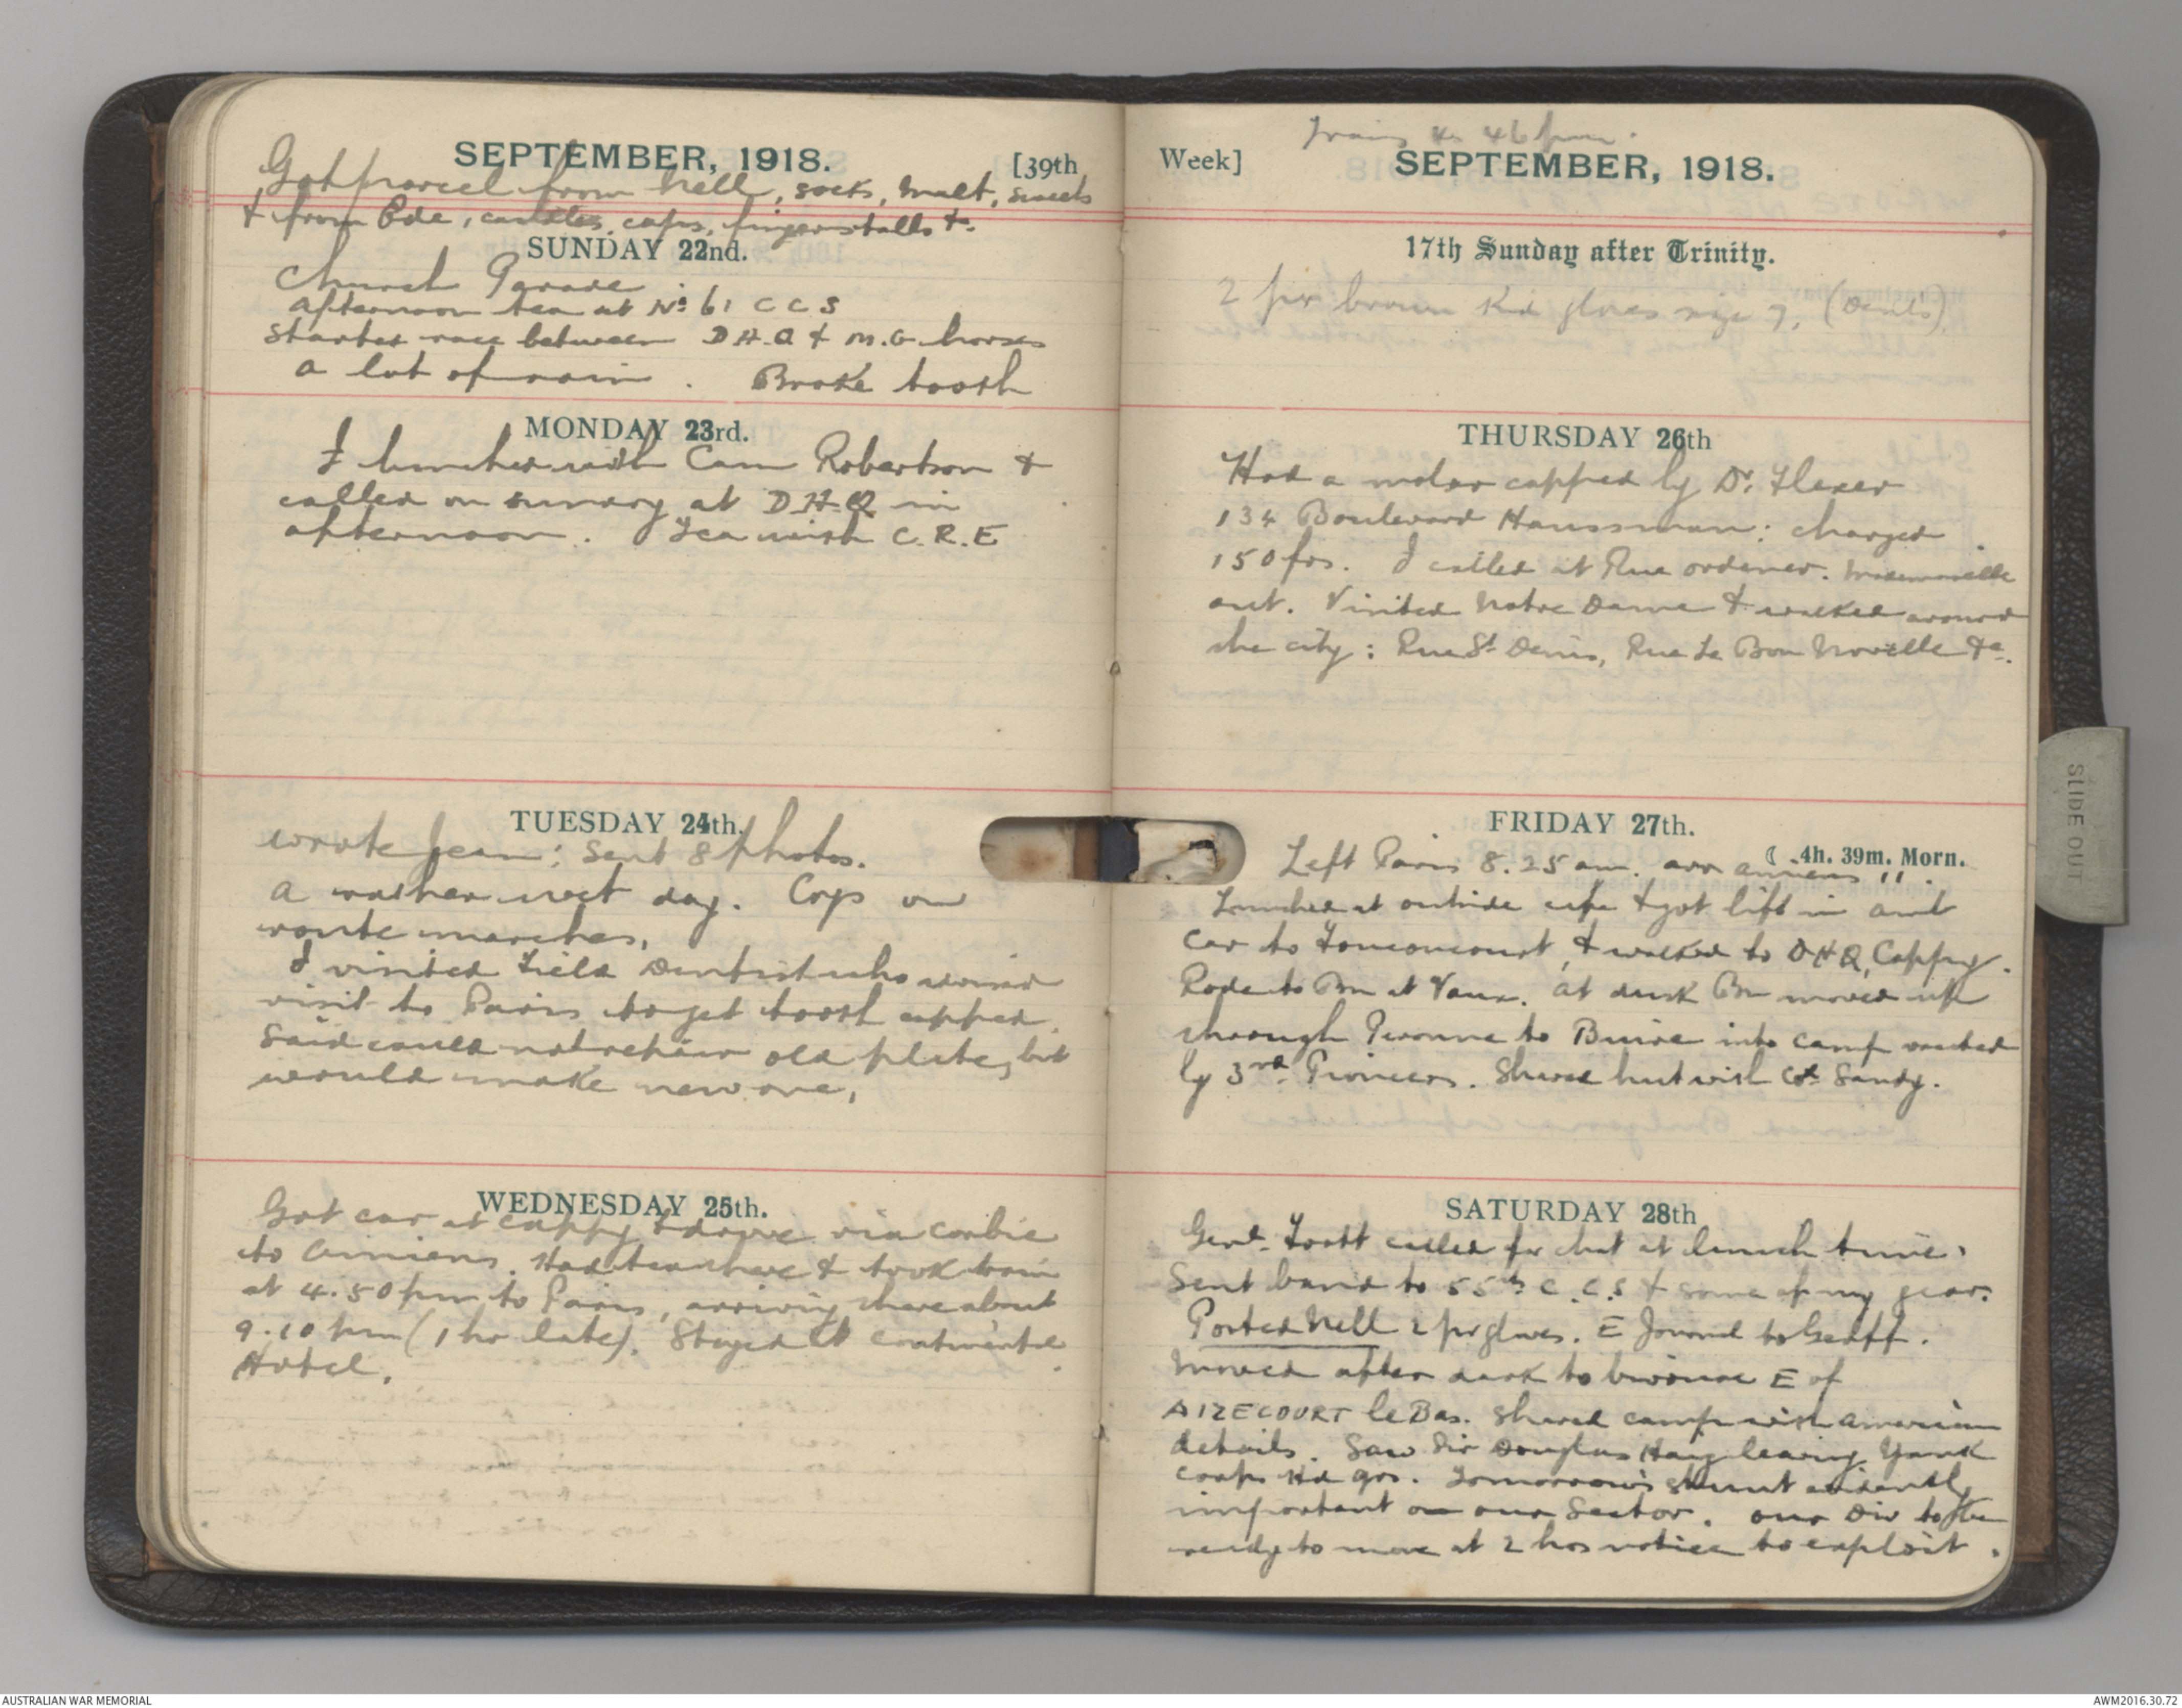 SEPTEMBER, 1918. [39th
Got parcel from Nell, socks, malt, sweets
& from Ode, candles, caps, fingerstalls &c.
SUNDAY 22nd.
Church Parade
afternoon tea at No 61 CCS
Started race between D.H.Q & M.G horses
a lot of rain. Broke tooth
MONDAY 23rd.
I lunched with Cam Robertson &
called on sundry at D.H.Q in
afternoon. Tea with C.R.E
TUESDAY 24th.
wrote Jean; sent 8 photos.
A rather wet day. Coys on
route marches.
I visited Field Dentist who advised
visit to Paris to get tooth capped.
Said could not repair old plate, but
would make new one.
WEDNESDAY 25th.
Got car at Cappy & drove via Corbie
to Amiens. Had tea there & took train
at 4.50 pm to Paris, arriving there about
9.10 pm (1 hr late). Stayed at Continental
Hotel.
Week] SEPTEMBER, 1918.
Train 46 pm.
17th Sunday after Trinity.
2 prs brown kid gloves size 7. (Dents)
THURSDAY 26th
Had a molar capped by Dr.
134 Boulevard Haussman: charged
150 frs. I called at Rue Ordener. Mademoiselle
out. Visited Notre Dame & walked around
the city: Rue St Denis, Rue Le Bon Novelle &c.
FRIDAY 27th.
☾ 4h. 39m. Morn.
Left Paris 8.25 am. arr Amiens 11.
Lunched at outside cafe & got lift in amb
car to & walked to DHQ, Cappy.
Rode to Bn at Vaux. At dusk Bn moved up
through Peronne to Buire into camp vacated
by 3rd Pioneers. Shared hut with Col Sandy.
SATURDAY 28th
Genl. called for chat at lunch time.
Sent band to 55th C.C.S & some of my gear.
Posted Nell 2 pr gloves. E Journal to Geoff.
Moved after dark to bivouac E of
AIZECOURT le Bas. Shared camp with American
details. Saw Sir Douglas Haig leaving Yank
Corps Hd qrs. Tomorrow's stunt evidently
important on our Sector. Our Div to be
ready to move at 2 hrs notice to exploit.
SLIDE OUT
AUSTRALIAN WAR MEMORIAL
AWM2016.30.72